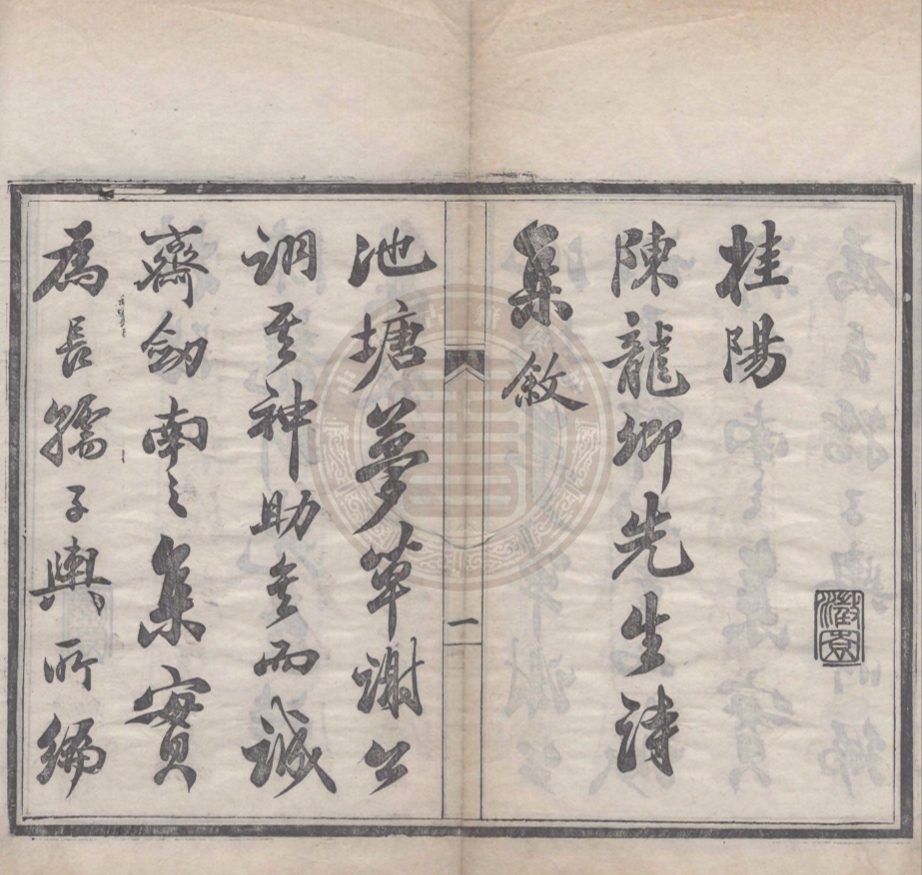 桂陽
陳龍卿先生詩
集敘
一
池塘夢草謝公
詡其神助矣而誠
齋劍南之集實
為長孺子輿所編